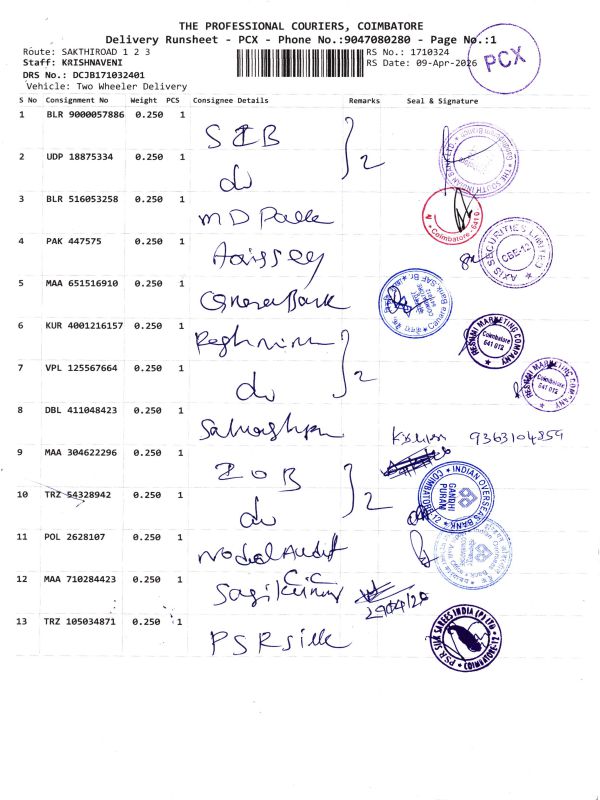 THE PROFESSIONAL COURIERS, COIMBATORE
Delivery Runsheet - PCX - Phone No.:9047080280 - Page No.:1
Route: SAKTHIROAD 1 2 3
RS No.: 1710324
Staff: KRISHNAVENI
RS Date: 09-Apr-2026
DRS No.: DCJB171032401
Vehicle: Two Wheeler Delivery
PCX
S No Consignment No Weight PCS Consignee Details Remarks Seal & Signature
1 BLR 9000057886 0.250 1 SIB
2
2 UDP 18875334 0.250 1 do
3 BLR 516053258 0.250 1 MD Palle
Coimbatore
4 PAK 447575 0.250 1
AXIS SECURITIES LIMITED
CBE-12
5 MAA 651516910 0.250 1 Canara Bank
Canara Bank
6 KUR 4001216157 0.250 1
2
RESHMI MARKETING COMPANY
Coimbatore
641 012
7 VPL 125567664 0.250 1 do
RESHMI MARKETING COMPANY
Coimbatore
641 012
8 DBL 411048423 0.250 1
9363104859
9 MAA 304622296 0.250 1 IOB
2
INDIAN OVERSEAS BANK
COIMBATORE
GANDHI
PURAM
10 TRZ 54328942 0.250 1 do
11 POL 2628107 0.250 1 Nodel Audit
12 MAA 710284423 0.250 1
CIC
13 TRZ 105034871 0.250 1 PSR silk
PSR SILK SAREES INDIA (P) LTD
COIMBATORE-12